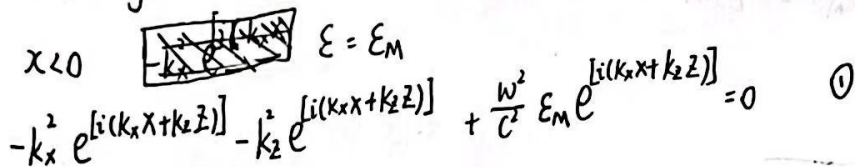 x<0 ε = ε_M
-k_x^2 e^{[i(k_x x+k_z z)]} - k_z^2 e^{[i(k_x x+k_z z)]} + \frac{w^2}{c^2} ε_M e^{[i(k_x x+k_z z)]} = 0 ①